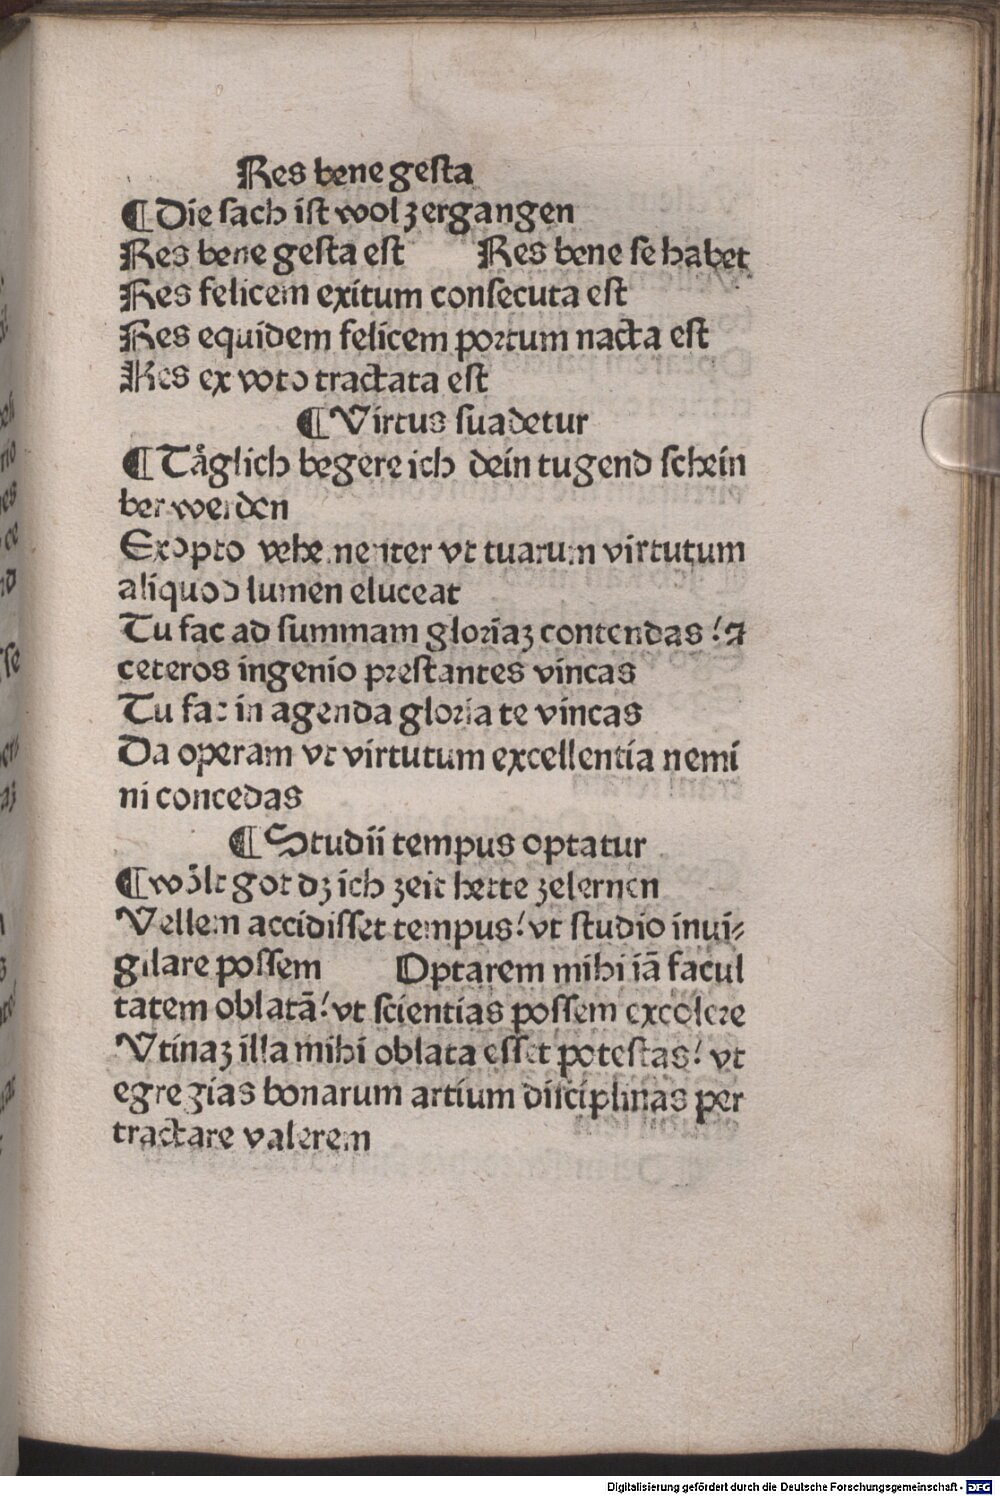 Res bene gesta
¶ Die sach ist wol zergangen
Res bene gesta est Res bene se habet
Res felicem exitum consecuta est
Res equidem felicem portum nacta est
Res ex voto tractata est
¶ Virtus suadetur
¶ Tåglich begere ich dein tugend schein
ber werden
Exopto vehementer vt tuarum virtutum
aliquod lumen eluceat
Tu fac ad summam gloriaꝫ contendas / ⁊
ceteros ingenio prestantes vincas
Tu fac in agenda gloria te vincas
Da operam vt virtutum excellentia nemi
ni concedas
¶ Studii tempus optatur
¶ wölt got dz ich zeit hette zelernen
Vellem accidisset tempus / vt studio inui⸗
gilare possem Optarem mihi iā facul
tatem oblatā / vt scientias possem excolere
Vtinaꝫ illa mihi oblata esset potestas / vt
egregias bonarum artium disciplinas per
tractare valerem
Digitalisierung gefördert durch die Deutsche Forschungsgemeinschaft - DFG